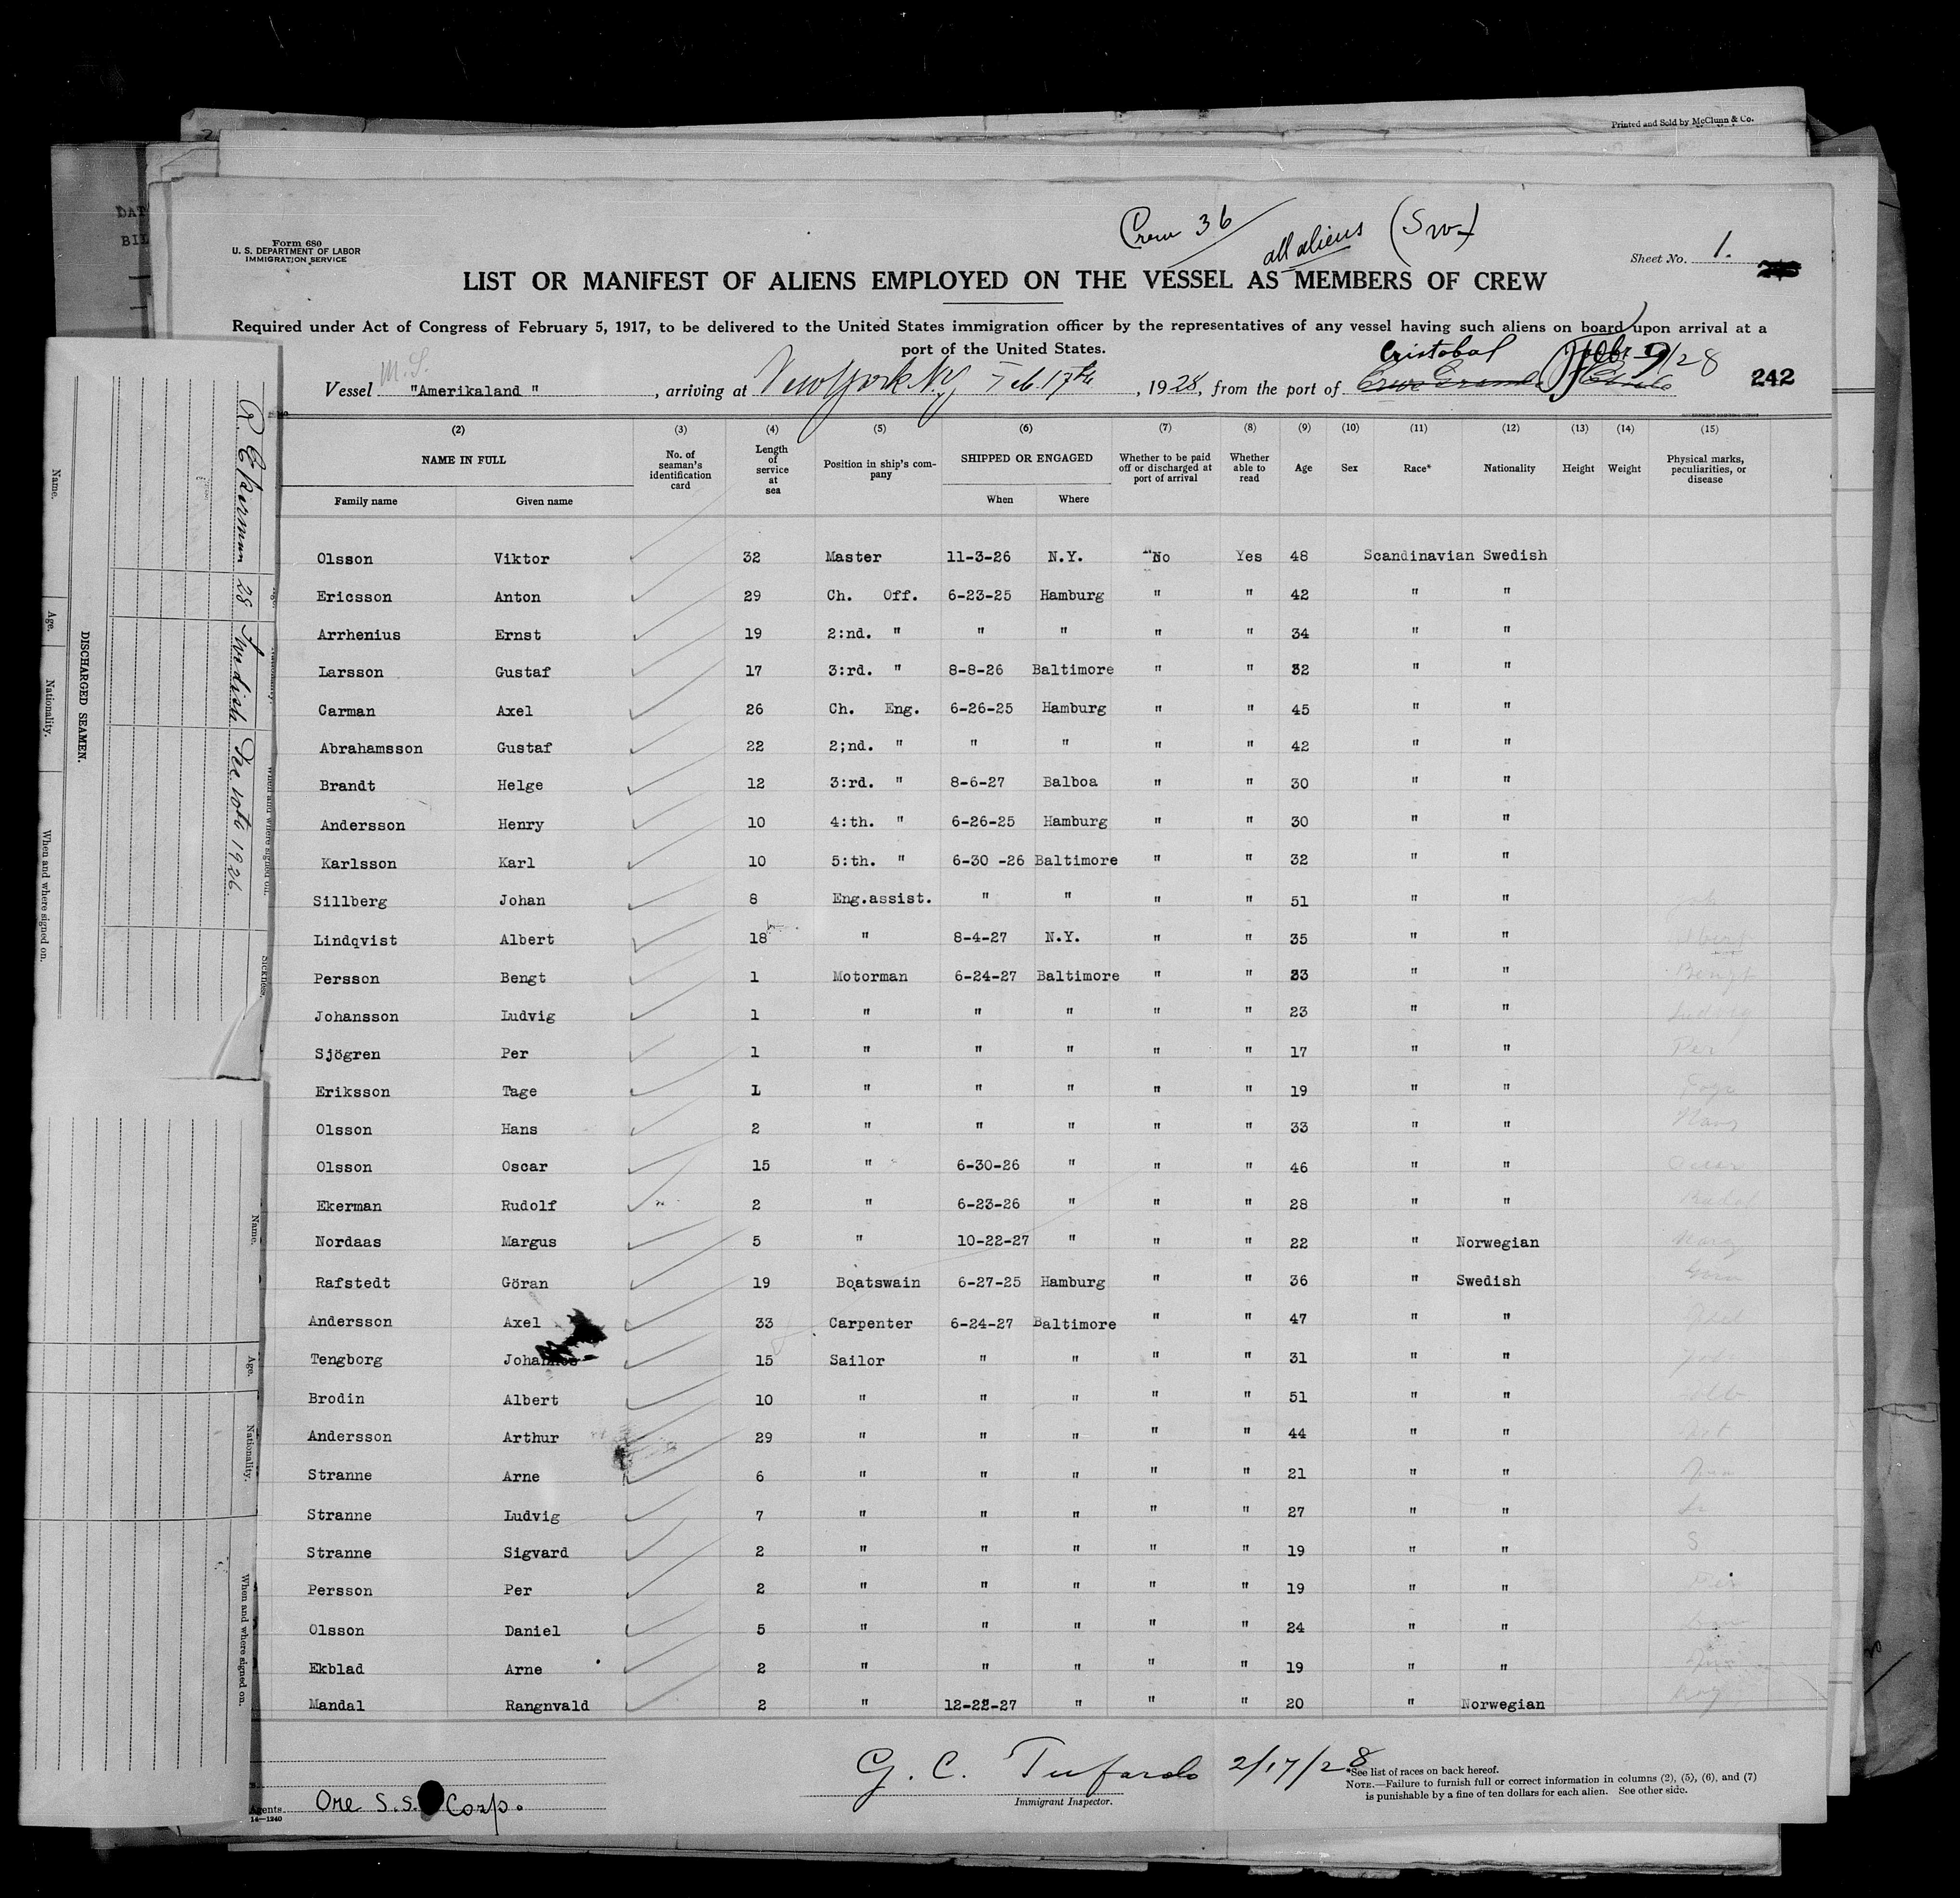 Printed and Sold by McClunn & Co.
Crew 36
all aliens (Sw)
Form 680
U. S. DEPARTMENT OF LABOR
IMMIGRATION SERVICE
Sheet No. 1.
LIST OR MANIFEST OF ALIENS EMPLOYED ON THE VESSEL AS MEMBERS OF CREW
Required under Act of Congress of February 5, 1917, to be delivered to the United States immigration officer by the representatives of any vessel having such aliens on board upon arrival at a
port of the United States.
M.S.
Cristobal
Vessel "Amerikaland ", arriving at New York N.Y. Feb. 17th, 1928, from the port of
242
(2) (3) (4) (5) (6) (7) (8) (9) (10) (11) (12) (13) (14) (15)
NAME IN FULL No. of seaman's identification card Length of service at sea Position in ship's company SHIPPED OR ENGAGED Whether to be paid off or discharged at port of arrival Whether able to read Age Sex Race* Nationality Height Weight Physical marks, peculiarities, or disease
Family name Given name When Where
Olsson Viktor 32 Master 11-3-26 N.Y. No Yes 48 Scandinavian Swedish
Ericsson Anton 29 Ch. Off. 6-23-25 Hamburg " " 42 " "
Arrhenius Ernst 19 2:nd. " " " " " 34 " "
Larsson Gustaf 17 3:rd. " 8-8-26 Baltimore " " 32 " "
Carman Axel 26 Ch. Eng. 6-26-25 Hamburg " " 45 " "
Abrahamsson Gustaf 22 2;nd. " " " " " 42 " "
Brandt Helge 12 3:rd. " 8-6-27 Balboa " " 30 " "
Andersson Henry 10 4:th. " 6-26-25 Hamburg " " 30 " "
Karlsson Karl 10 5:th. " 6-30 -26 Baltimore " " 32 " "
Sillberg Johan 8 Eng.assist. " " " " 51 " "
Lindqvist Albert 18 " 8-4-27 N.Y. " " 35 " "
Persson Bengt 1 Motorman 6-24-27 Baltimore " " 33 " " Bengt
Johansson Ludvig 1 " " " " " 23 " " Ludvig
Sjögren Per 1 " " " " " 17 " " Per
Eriksson Tage 1 " " " " " 19 " "
Olsson Hans 2 " " " " " 33 " "
Olsson Oscar 15 " 6-30-26 " " " 46 " "
Ekerman Rudolf " 2 " 6-23-26 " " " 28 " "
Nordaas Margus 5 " 10-22-27 " " " 22 " Norwegian
Rafstedt Göran 19 Boatswain 6-27-25 Hamburg " " 36 " Swedish
Andersson Axel 33 Carpenter 6-24-27 Baltimore " " 47 " "
Tengborg Johannes 15 Sailor " " " " 31 " "
Brodin Albert 10 " " " " " 51 " "
Andersson Arthur 29 " " " " " 44 " "
Stranne Arne 6 " " " " " 21 " "
Stranne Ludvig 7 " " " " " 27 " "
Stranne Sigvard 2 " " " " " 19 " " S
Persson Per 2 " " " " " 19 " "
Olsson Daniel 5 " " " " " 24 " "
Ekblad Arne 2 " " " " " 19 " "
Mandal Rangnvald 2 " 12-22-27 " " " 20 " Norwegian
G. C. Tufardo 2/17/28
Immigrant Inspector.
Ore S.S. Corp.
Agents
14—1240
*See list of races on back hereof.
NOTE.—Failure to furnish full or correct information in columns (2), (5), (6), and (7)
is punishable by a fine of ten dollars for each alien. See other side.
DISCHARGED SEAMEN.
Name. Age. Nationality. When and where signed on.
R Ekerman 28 Swedish
1926.
Sickness.
Name. Age. Nationality. When and where signed on.